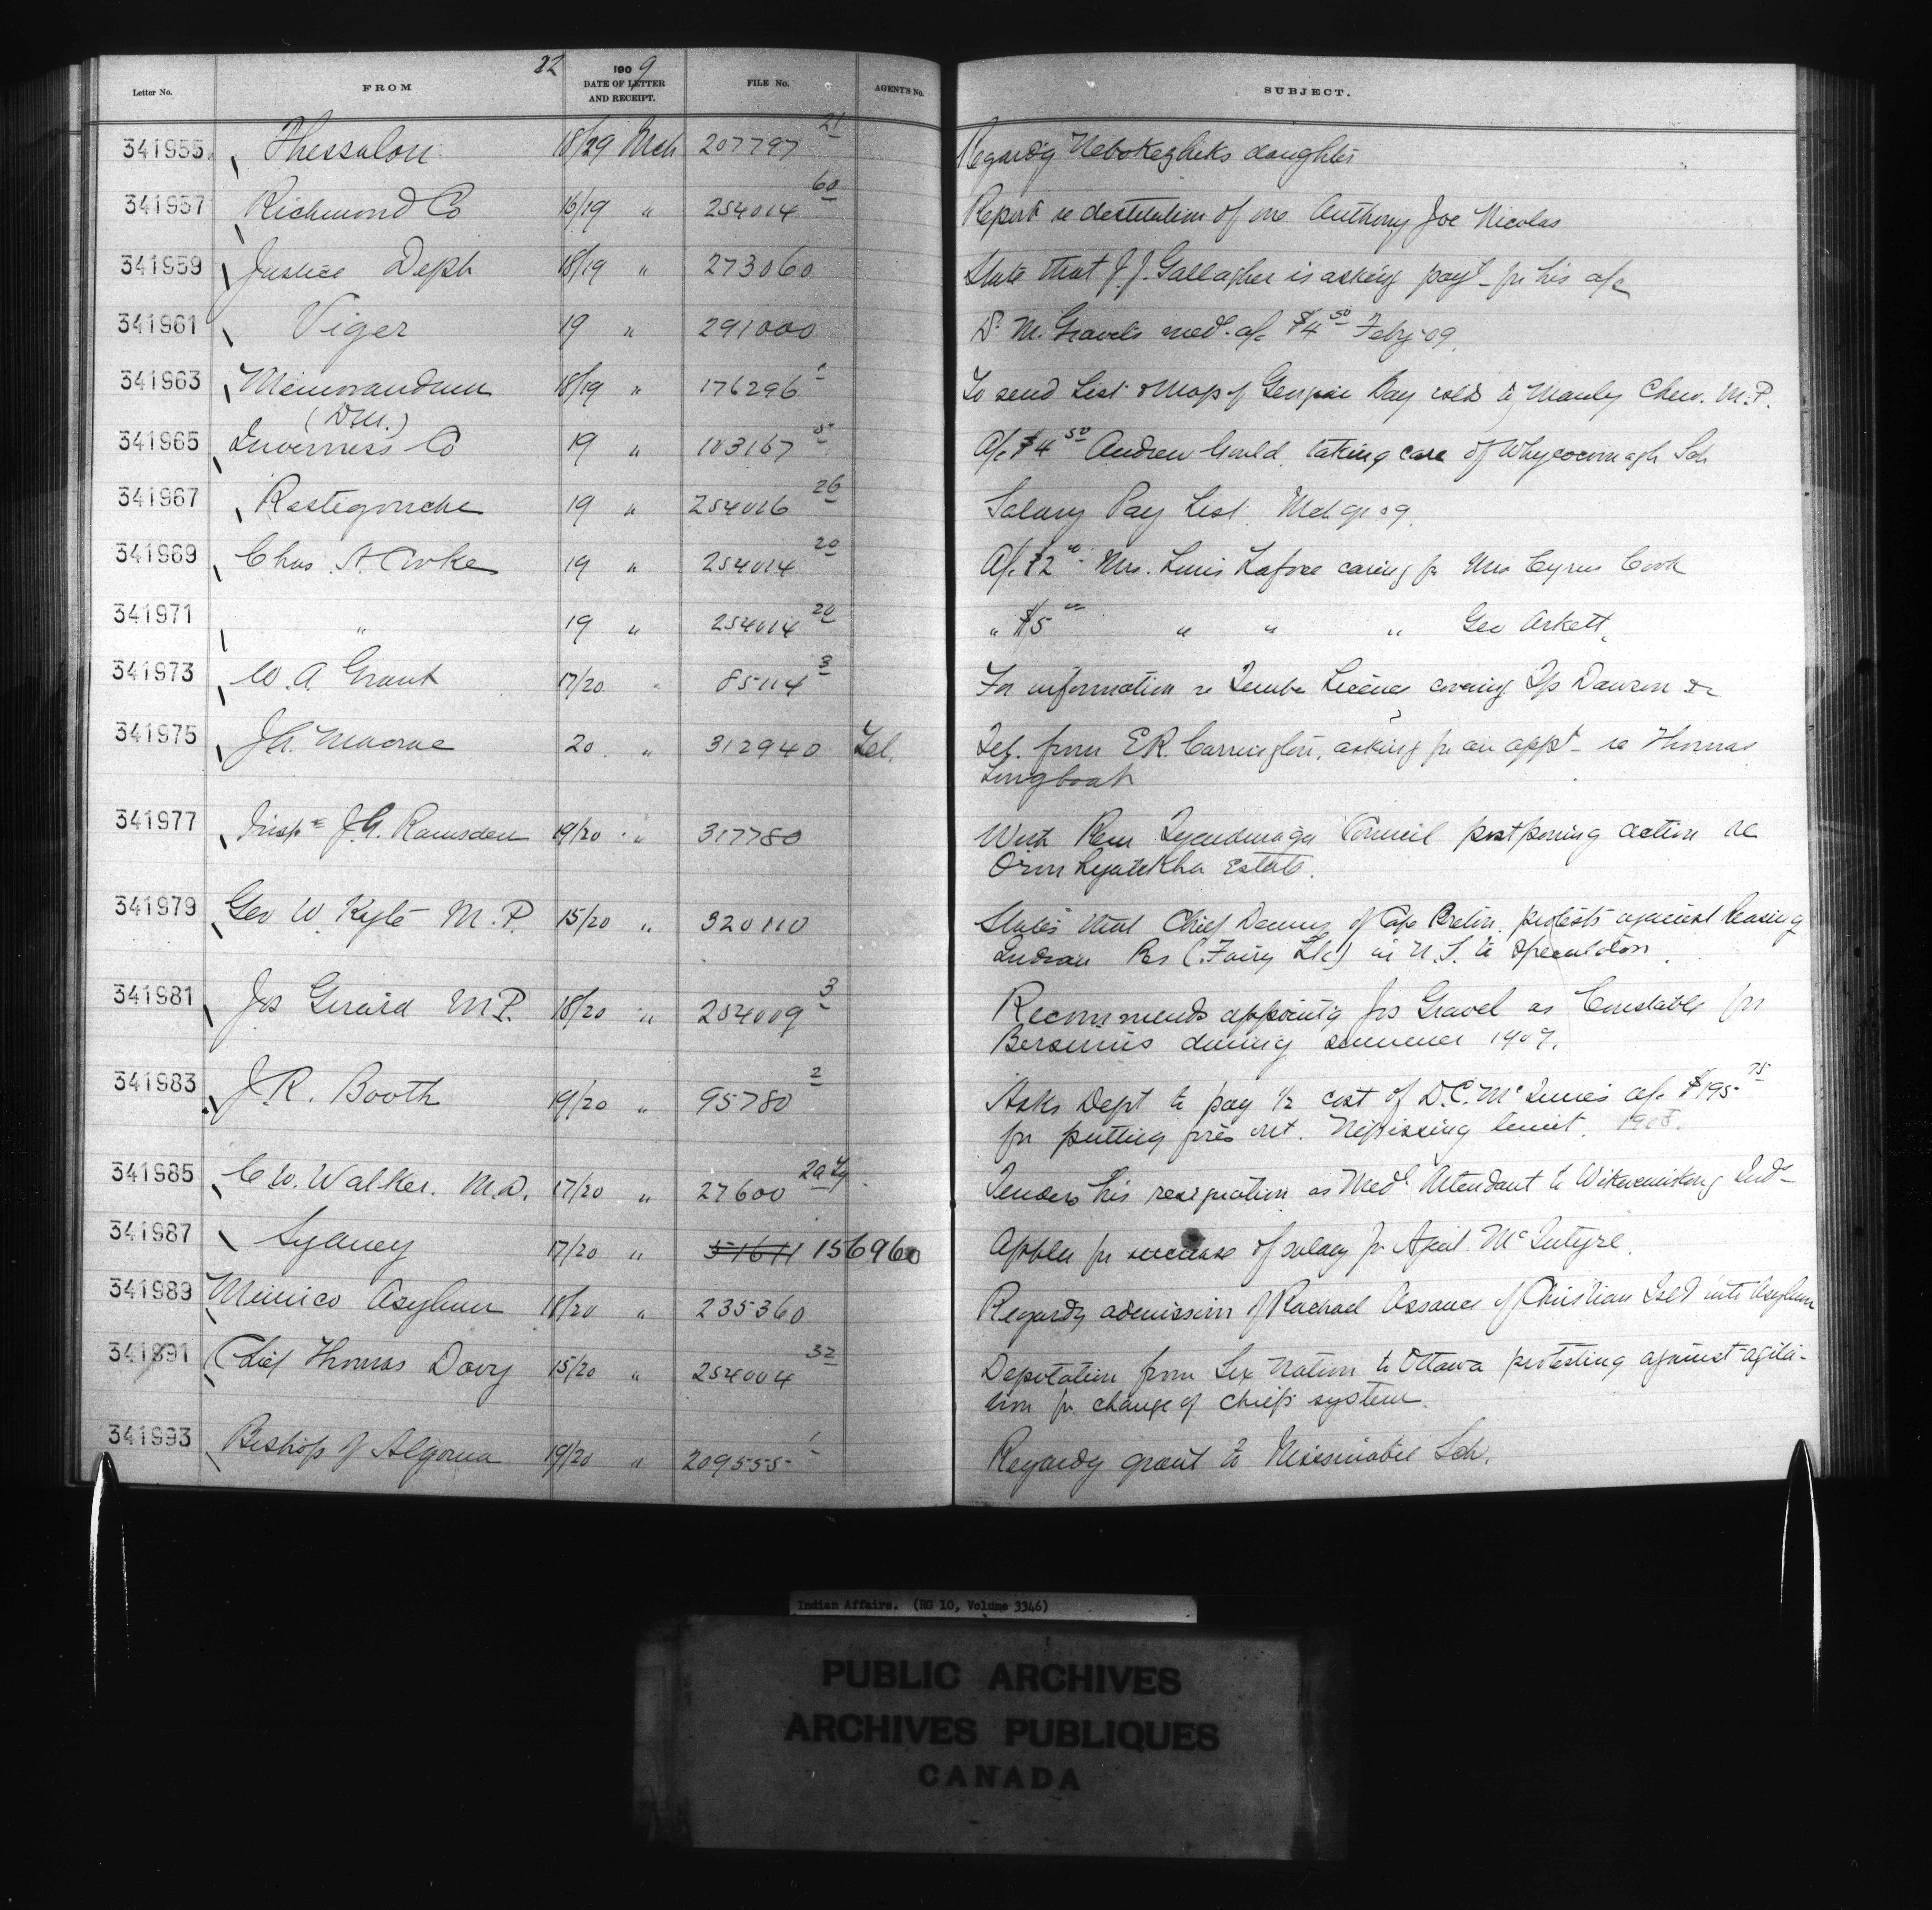 22
Letter No. FROM 1909 DATE OF LETTER AND RECEIPT. FILE No. AGENT'S No. SUBJECT.
341955 Thessalon 18/29 Mch 207797 21 Regardg Nebokezhiks daughter
341957 Richmond Co 16/19 " 254014 60 Report re destitution of one Anthony Joe Nicolas
341959 Justice Dept 18/19 " 273060 State that J.J. Gallagher is asking payt for his a/c
341961 Viger 19 " 291000 Dr M. Gravel's med. a/c $4 50 Feby 09.
341963 Memorandum 18/19 " 176296 To send List & Map of Georgian Bay islds to Manly Chew. M.P.
(D.M.)
341965 Inverness Co 19 " 103167 A/c $4 50 Andrew Gould taking care of Whycocomagh Sch
341967 Restigouche 19 " 254016 26 Salary Pay List. Mch qr 09.
341969 Chas. A. Cooke 19 " 254014 20 A/c $2 00 Mrs. Louis Laforce caring for Mrs Cyrus Cook
341971 " 19 " 254014 20 " $5 00 " " " Geo Arkett.
341973 W. A. Grant 17/20 " 85114 3 For information re Timber Licence covering Tps Dawson &c
341975 J.A. Macrae 20 " 312940 Tel. Tel. from E.R. Carrington, asking for an appt re Thomas
Longboat
341977 Inspr J.G. Ramsden 19/20 " 317780 With Resn Tyendinaga Council postponing action re
Oronhyatekha Estate.
341979 Geo W. Kyte M.P. 15/20 " 320110 States that Chief Denny of Cape Breton protests against leasing
Indian Res (Fairy Lk) in N.S. to speculators.
341981 Jos Girard M.P. 18/20 " 254009 3 Recommends appointg Jos Gravel as Constable for
Bersimis during summer 1909.
341983 J.R. Booth 19/20 " 95780 2 Asks Dept to pay 1/2 cost of D.C. McInnis a/c $195 75
for putting fires out. Nipissing limit. 1908.
341985 C.W. Walker. M.D. 17/20 " 27600 Tenders his resignation as Medl Attendant to Wikwemikong Inds
341987 Sydney 17/20 " 51611 156960 Applies for increase of salary for Agent McIntyre.
341989 Mimico Asylum 18/20 " 235360 Regardg admission of Rachael Assance of Christian Isld into Asylum
341991 Chief Thomas Davy 15/20 " 254004 32 Deputation from Six Nation to Ottawa protesting against agita-
tion for change of chiefs system.
341993 Bishop of Algoma 19/20 " 209555 1 Regardg grant to Sch.
Indian Affairs. (RG 10, Volume 3346)
PUBLIC ARCHIVES
ARCHIVES PUBLIQUES
CANADA